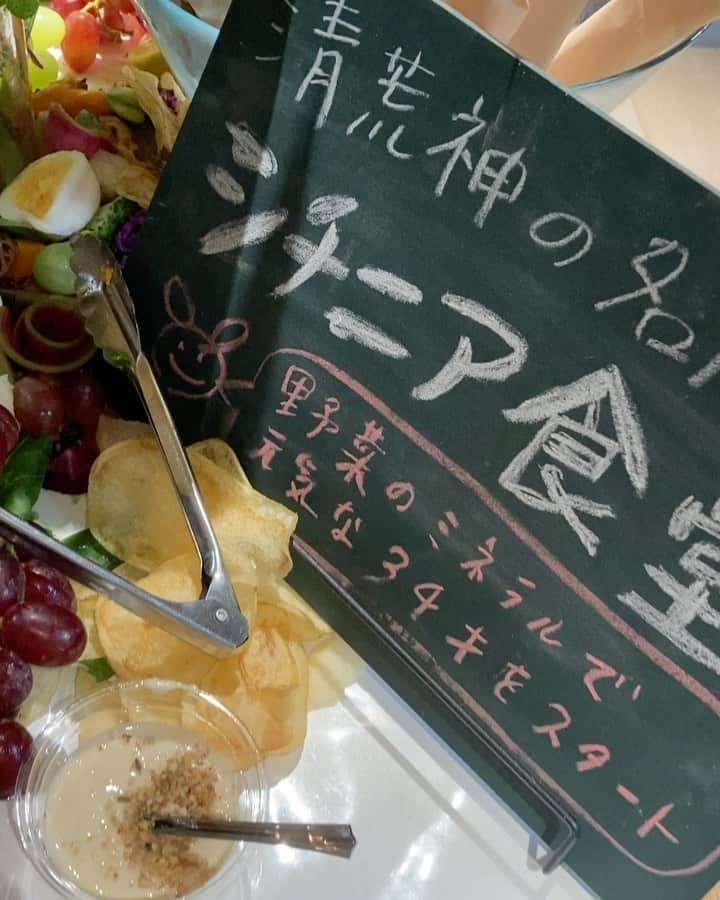 清荒神の名
シチニア食堂
野菜のミネラルで
元気な34キをスタート